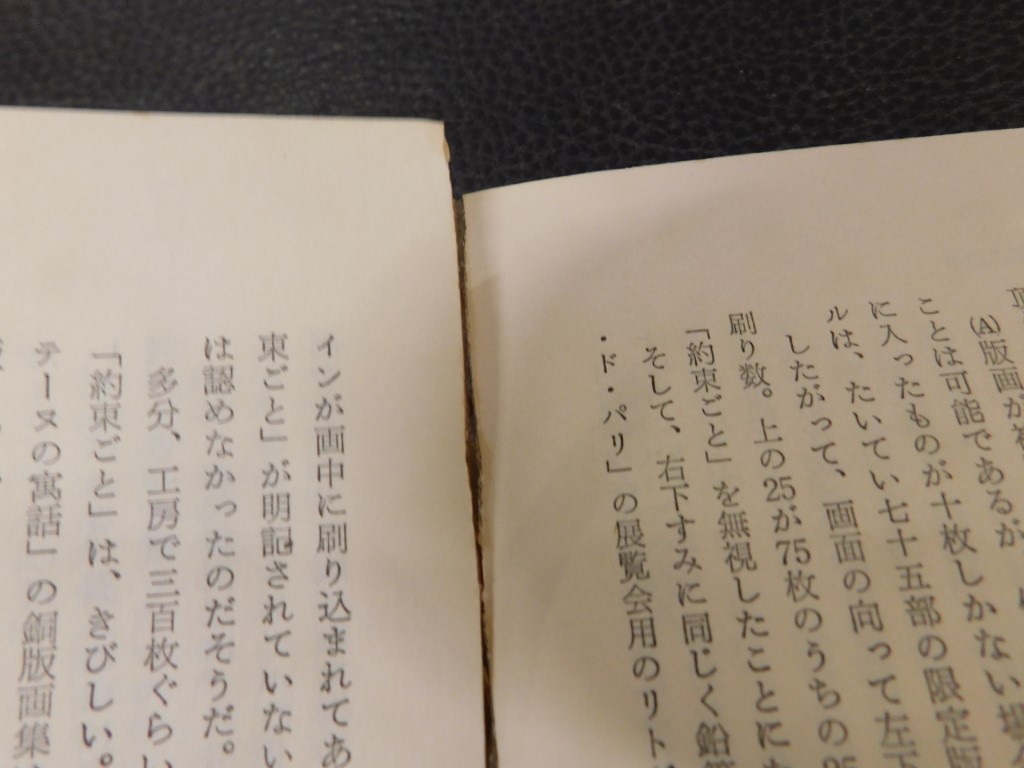 (A)版画が
ことは可能であるが
に入ったものが十枚しかない場
ルは、たいてい七十五部の限定版
したがって、画面の向って左下
刷り数。上の25が75枚のうちの
「約束ごと」を無視したことに
そして、右下すみに同じく鉛
・ド・パリ」の展覧会用のリト
ィンが画中に刷り込まれてあ
束ごと」が明記されていない
は認めなかったのだそうだ。
多分、工房で三百枚ぐらい
「約束ごと」は、きびしい。
テーヌの寓話」の銅版画集